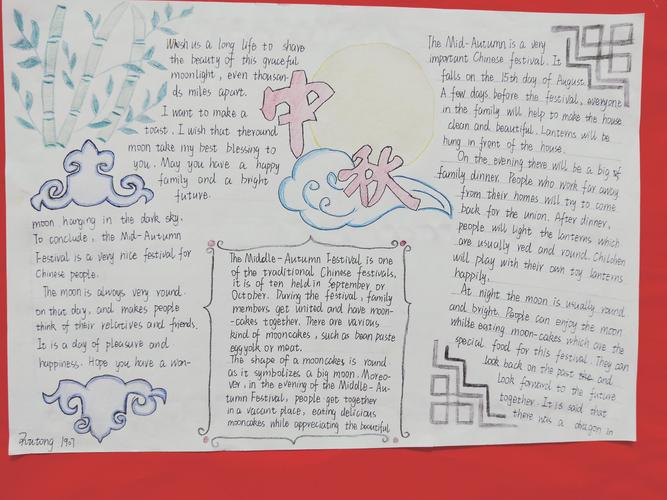 Wish us a long life to share
the beauty of this graceful
moonlight, even thousan-
ds miles apart.
I want to make a
toast. I wish that theround
moon take my best blessing to
you. May you have a happy
family and a bright
future.
中秋
The Mid-Autumn is a very
important Chinese festival. It
falls on the 15th day of August.
A few days before the festival, everyone
in the family will help to make the house
clean and beautiful. Lanterns will be
hung in front of the house.
On the evening there will be a big
family dinner. People who work far away
from their homes will try to come
back for the union. After dinner,
people will light the lanterns which
are usually red and round. Children
will play with their own toy lanterns
happily.
At night the moon is usually round
and bright. People can enjoy the moon
while eating moon-cakes which are the
special food for this festival. They can
look back on the past and
look forward to the future
together. It is said that
there was a dragon in
The Middle-Autumn Festival is one
of the traditional Chinese festivals,
it is of ten held in September or
October. During the festival, family
members get united and have moon-
-cakes together. There are various
kind of mooncakes, such as bean paste
egg yolk or meat.
The shape of a mooncakes is round
as it symbolizes a big moon. Moreo-
ver, in the evening of the Middle-Au-
tumn Festival, people get together
in a vacant place, eating delicious
mooncakes while appreciating the beautiful
moon hanging in the dark sky.
To conclude, the Mid-Autumn
Festival is a very nice festival for
Chinese people.
The moon is always very round
on that day, and makes people
think of their relatives and friends.
It is a day of pleasure and
happiness. Hope you have a won-
1907